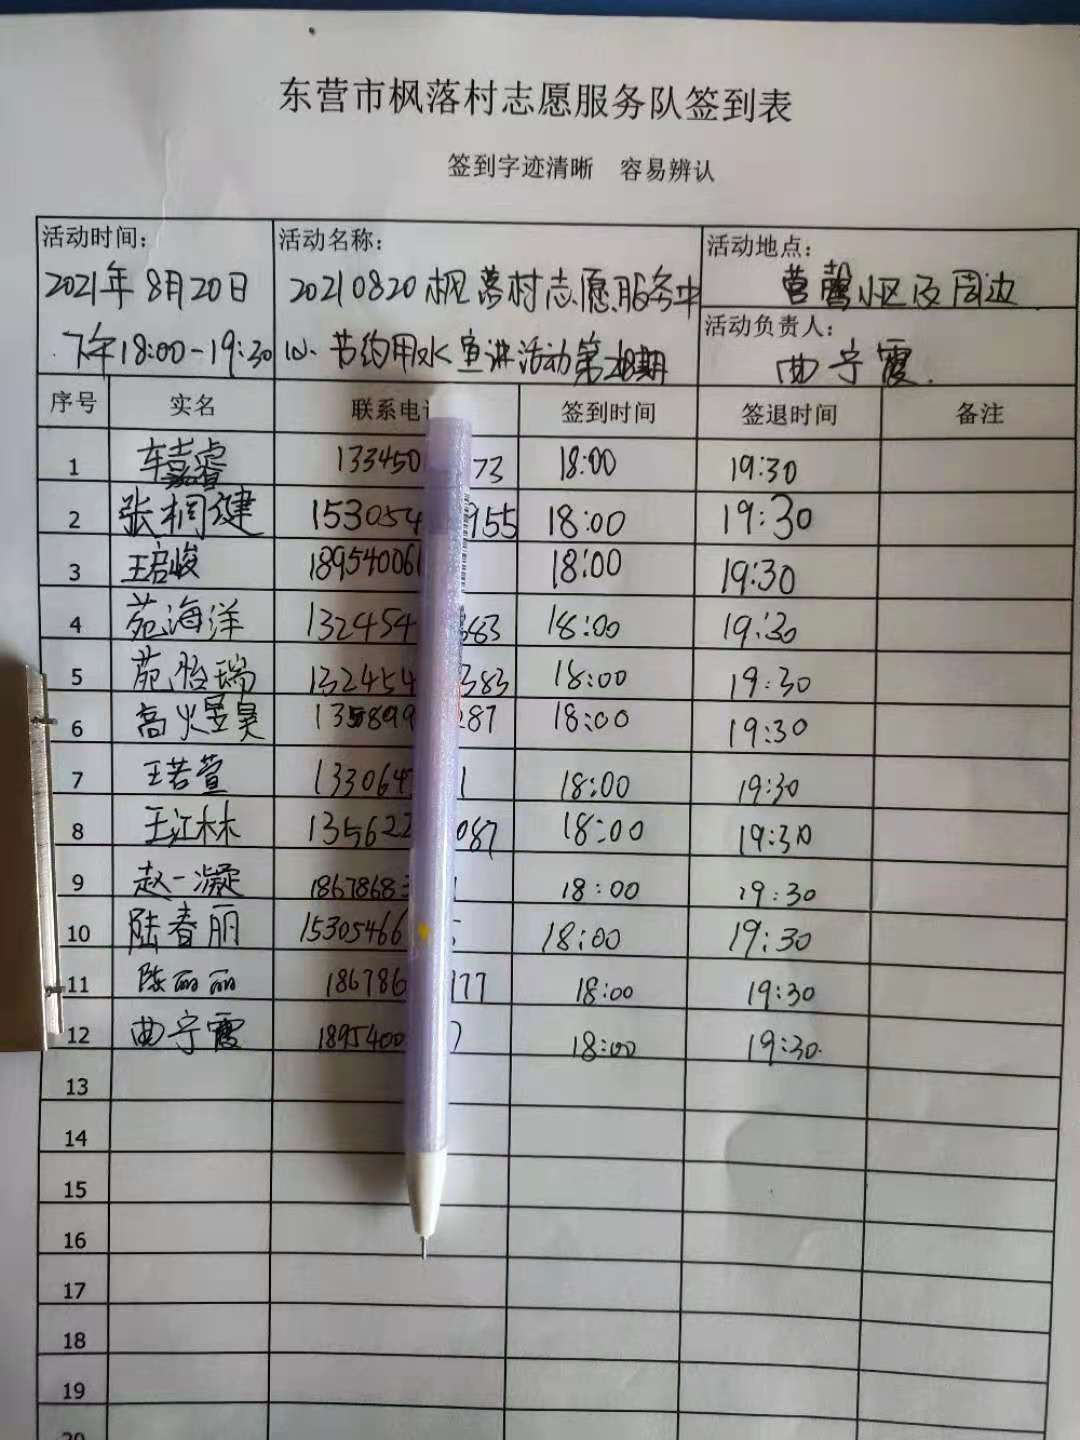 东营市枫落村志愿服务队签到表
签到字迹清晰 容易辨认
活动时间： 活动名称： 活动地点：
2021年8月20日 20210820枫落村志愿服务中 营馨小区及周边
下午18:00-19:30 心.节约用水宣讲活动第 期 活动负责人：
曲宁霞.
序号 实名 联系电 签到时间 签退时间 备注
1 车嘉睿 133450 73 18:00 19:30
2 张桐健 153054 955 18:00 19:30
3 王启峻 189540061 18:00 19:30
4 苑海洋 132454 383 18:00 19:30
5 苑怡瑞 132454 383 18:00 19:30
6 高火昱昊 135899 287 18:00 19:30
7 王若萱 133064 1 18:00 19:30
8 王江林 135622 087 18:00 19:30
9 赵一凝 18678683 1 18:00 19:30
10 陆春丽 15305466 18:00 19:30
11 陈丽丽 186786 177 18:00 19:30
12 曲宁霞 1895400 7 18:00 19:30.
13
14
15
16
17
18
19
20